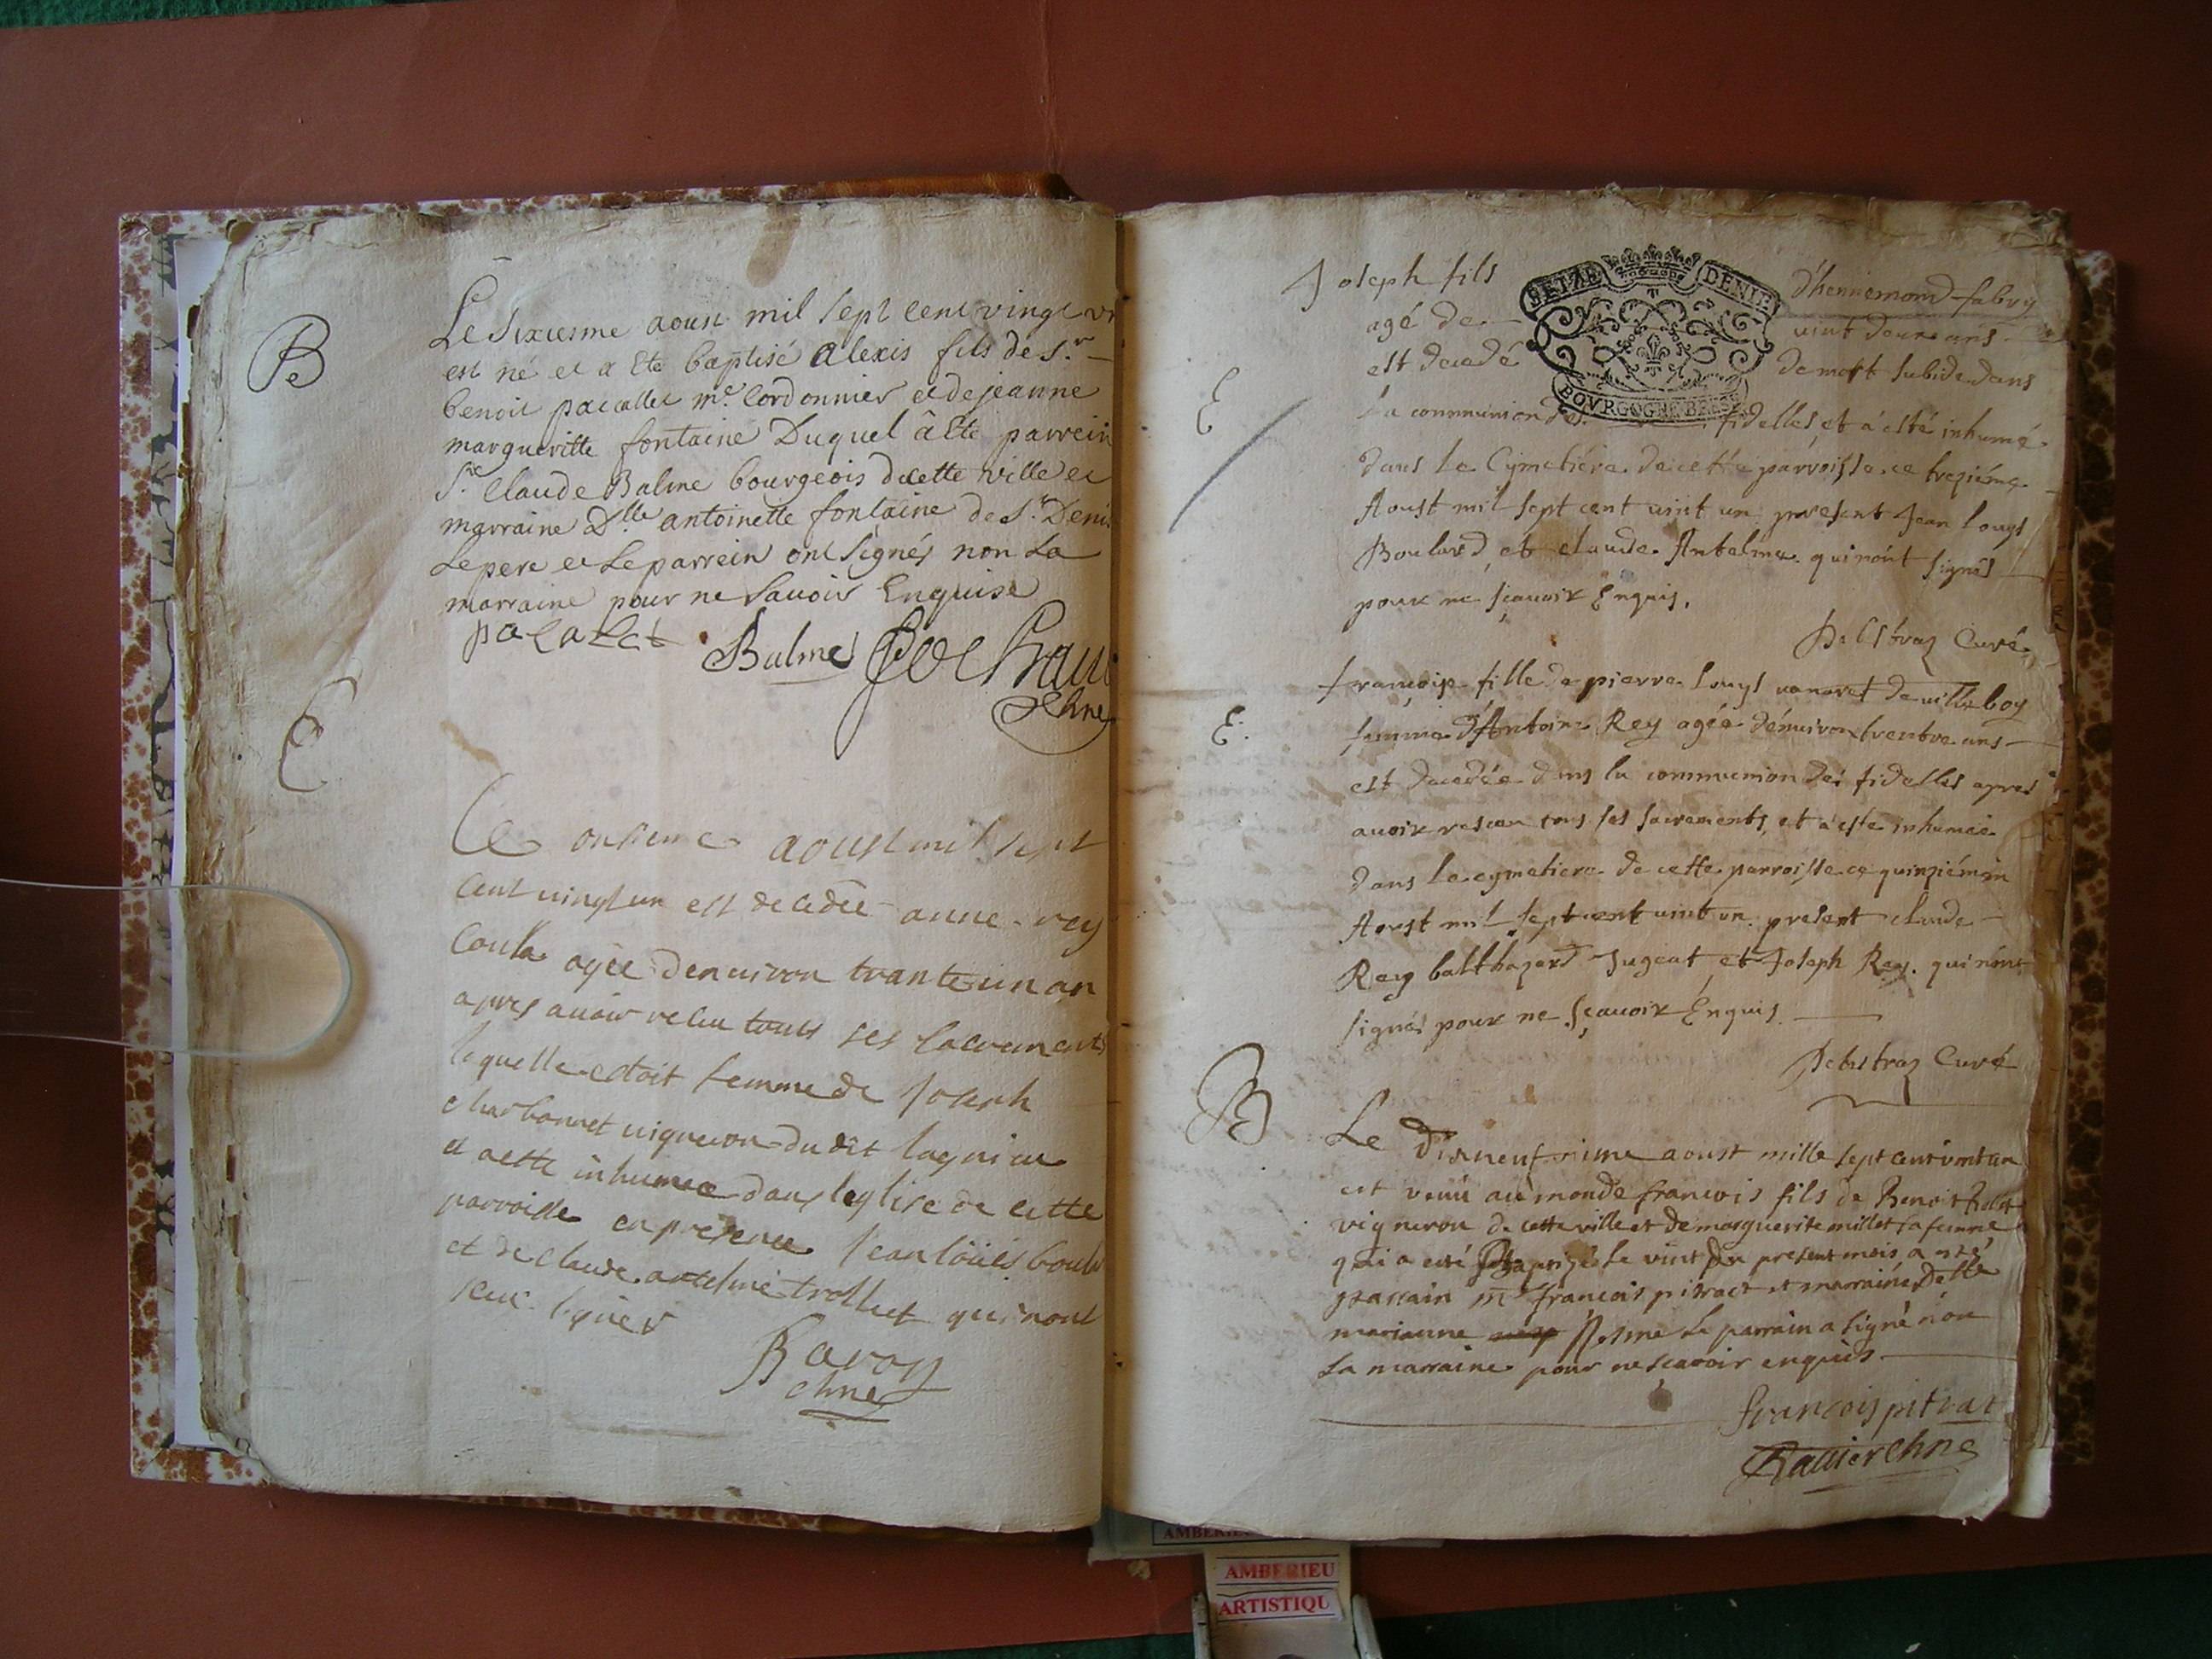 B
Le Sixiesme aoust mil sept cent vingt un
est né et a Ete baptisé alexis fils de S.r
benoit pacallet m.e Cordonnier et de jeanne
margueritte fontaine Duquel â Ete parrein
S.r Claude Balme bourgeois de cette ville et
marraine D.lle antoinette fontaine de S.t Denis
Le pere et Le parrein ont signés non La
marraine pour ne Savoir Enquise
pacalet Balme
Chne
E
Ce onsieme aoust mil sept
cent vingt un est decedée anne rey
agée denuiron trante un an
apres auoir receu touts ses sacrements
laquelle estoit femme de Joseph
charbonnet uigneron du dit lagnieu
et a esté inhumee dans leglise de cette
parroisse en presence Jean loüis
et de claude antelme trolliet qui nont
sceu signer
Baron
chne
Joseph fils d'hennemond fabry
SEIZE DENIE
agé de uint deux ans
est decedé de mort subide dans
E
la communion des fidelles et à esté inhumé
BOVRGOGNE BRESSE
dans le Cymetiére de cette parroisse ce treziéme
Aoust mil sept cent uint un present Jean Louys
Boulard, et claude Antelme qui n'ont signés
pour ne sçauoir Enquis.
Delestraz Curé
françoise fille de pierre Louys de uilleboy
E.
femme d'Antoine Rey agée d'énuiron trentre ans
est decedée dans la communion des fidelles apres
auoir receu tous ses sacrements, et a esté inhumée
dans le cymetiere de cette parroisse ce quinziémin
Aoust mil sept cent uint un present claude
Rey balthazard sugeat et Joseph Rey qui n'ont
signés pour ne sçauoir Énquis
Delestraz Curé
B
Le Disneufvieme aoust mille sept cent vint un
est venu au monde francois fils de Benoit
vigneron de cette ville et de marguerite millet sa femme
qui a esté Baptizé le vint du present mois a esté
parrain m.e francois pitract et marraine D.elle
marianne le parrain a signé non
La marraine pour ne scavoir enquis
francois pitrat
Ravier Chne
AMBERIEU
ARTISTIQU